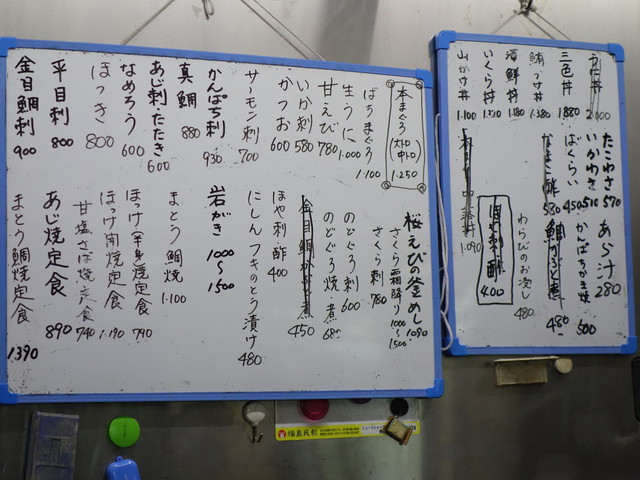 本まぐろ(大トロ 中トロ) 1.250
ばちまぐろ 1.100
生うに 1.000
甘えび 780
いか刺 580
かつお 600
サーモン刺 700
かんぱち刺 930
真鯛 880
あじ刺・たたき 600
なめろう 600
ほっき 800
平目刺 800
金目鯛刺 900
桜えびの釜めし 1090
さくら霜降り 1000〜1500
さくら刺 780
のどぐろ刺 600
のどぐろ焼・煮 680
450
ほや刺・酢 400
にしん フキのとう漬け 480
岩がき 1000〜1500
まとう鯛焼 1.100
ほっけ(半身)焼定食 790
ほっけ開焼定食 1.190
甘塩さば焼定食 740
あじ焼定食 890
まとう鯛焼定食 1390
うに丼 2.000
三色丼 1.880
鮪づけ丼 1.380
海鮮丼 1.180
いくら丼
山かけ丼 1.100
たこわさ 570
いかわさ 510
ばくらい 450
なまこ酢 580
1.090
あら汁 280
かんぱちかま焼 500
480
わらびのお浸し 480
ほや刺・酢 400
福島民報